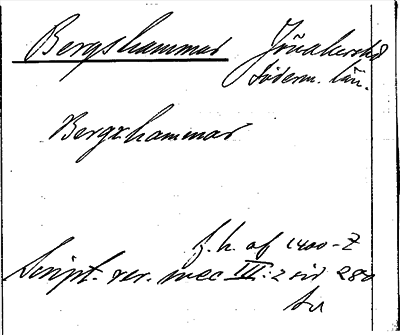 Bergshammar Jönåkers hd
Söderm. län.
Bergxhammar
f. h. af 1400-t
Script. rer. svec III: 2 sid 280